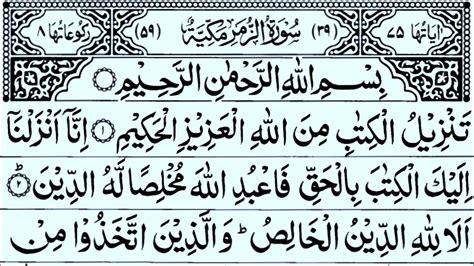 اٰیَاتُهَا ٧٥ (٣٩) سُوْرَةُ الزُّمَرِ مَكِّیَّةٌ (٥٩) رُكُوْعَاتُهَا ٨
بِسْمِ اللّٰهِ الرَّحْمٰنِ الرَّحِیْمِ
تَنْزِیْلُ الْكِتٰبِ مِنَ اللّٰهِ الْعَزِیْزِ الْحَكِیْمِ ۝١ اِنَّاۤ اَنْزَلْنَاۤ
اِلَیْكَ الْكِتٰبَ بِالْحَقِّ فَاعْبُدِ اللّٰهَ مُخْلِصًا لَّهُ الدِّیْنَ ۝٢
اَلَا لِلّٰهِ الدِّیْنُ الْخَالِصُ ؕ وَالَّذِیْنَ اتَّخَذُوْا مِنْ